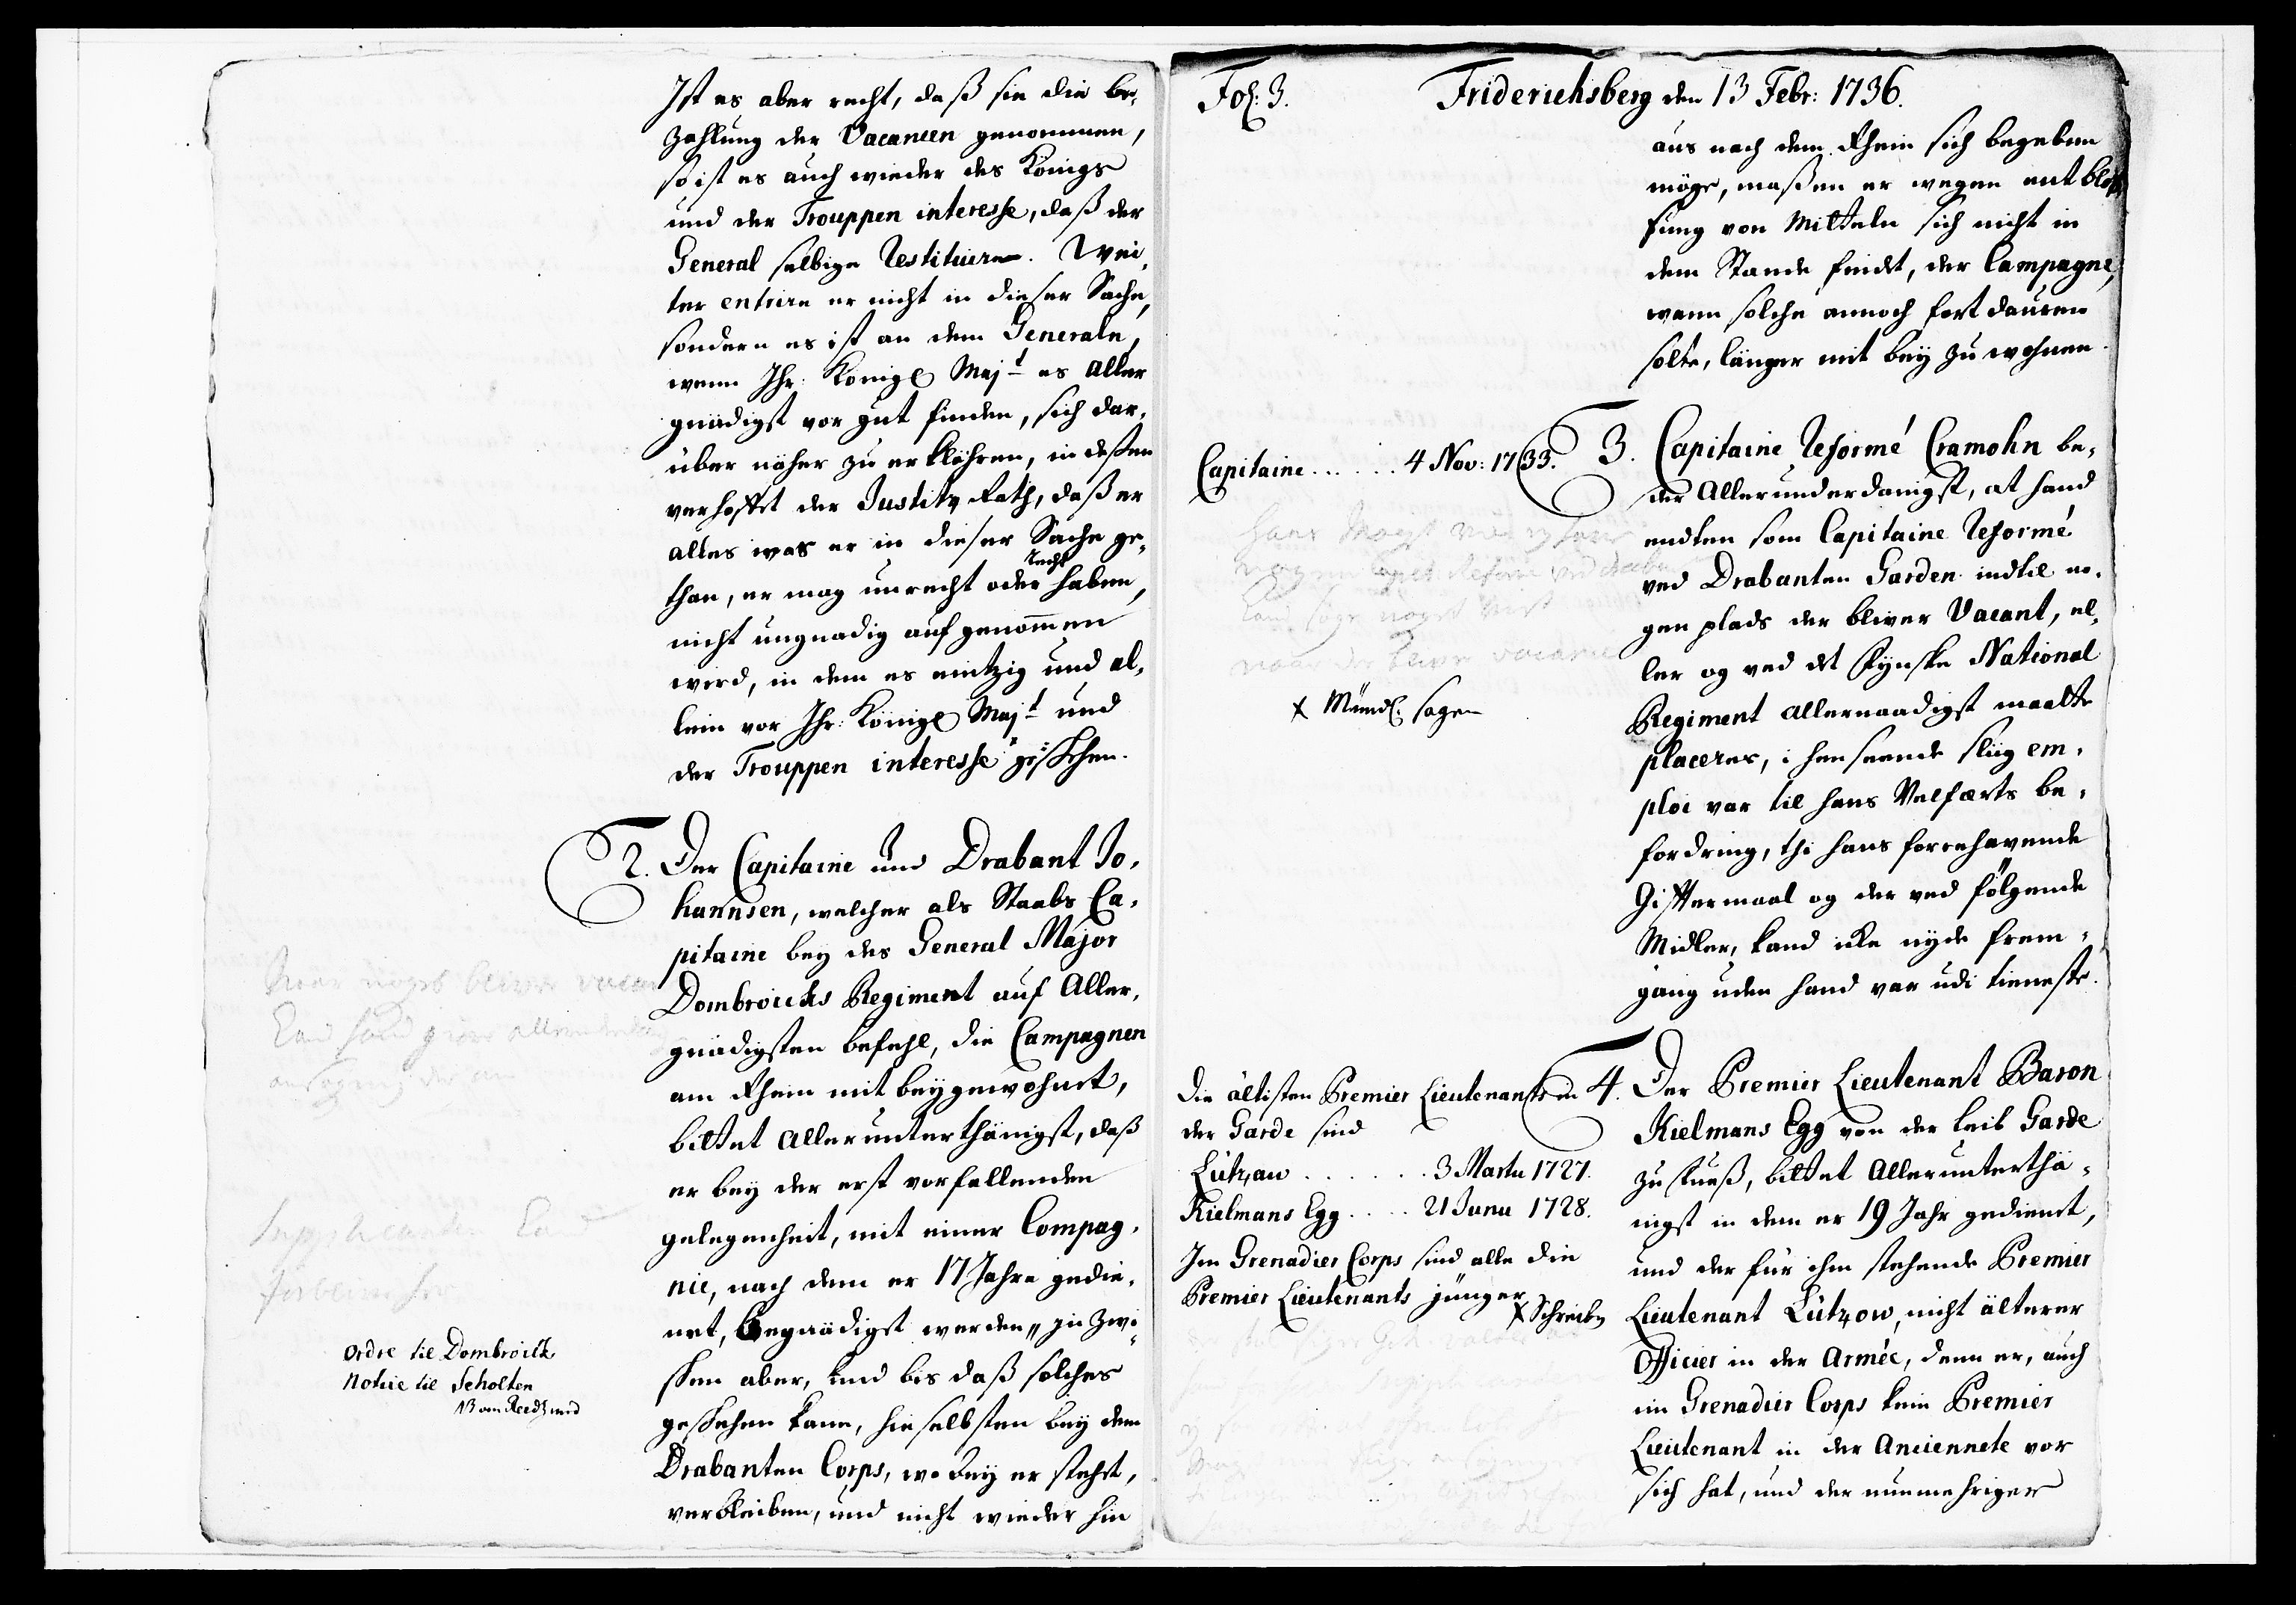 Ist es aber recht, daß sie die be-
zahlung der Vacancen genommen,
so ist es auch wieder des Königs
und der Trouppen interesse, daß der
General selbige Restituire. Wei-
ter entrire er nicht in dieser Sache,
sondern es ist an dem Generaln,
wenn Ihr: Königl Majt es Aller
gnädigst vor gut finden, sich dar-
über näher zu erklähren, in deßen
verhoffet der Justitz Rath, daß er
alles was er in dieser Sache ge-
than, er mag unrecht oder Recht haben,
nicht ungnädig aufgenommen
wird, in dem es eintzig und al-
lein vor Ihr: Königl Majt und
der Trouppen interesse geschehen.
2. Der Capitaine und Drabant Jo-
hannsen, welcher als Staabs Ca-
pitaine bey des General Major
Dombroicks Regiment auf Aller-
gnädigsten befehl, die Campagnen
am Rhein mit beygewohnet,
bittet Allerunterthänigst, daß
er bey der erst vorfallenden
gelegenheit, mit einer Compag-
nie, nach dem er 17 Jahre gedie-
net, begnädigst werden, in zwi-
schen aber, und bis daß solches
geschehen kann, hieselbsten bey dem
Drabanten Corps, wobey er stehet,
verbleiben, und nicht wieder hin
Naar nogst bliver vacan
Kand hand giøre allerunderd
ansøgning der om
Supplicanten
forbliver her
Ordre til Dombroick
Notice til Scholten
Fol: 3.
Friderichsberg den 13 Febr: 1736.
aus nach dem Rhein sich begeben
möge, maßen er wegen entblöß-
sung von Mitteln sich nicht in
dem Stande findet, der Campagne,
wann solche annoch fort dauren
solte, länger mit bey zu wohnen.
Capitaine ...... 4 Nov: 1733.
3. Capitaine Reformé Cramohn be-
der Allerunderdanigst, at hand
endten som Capitaine Reformé
ved Drabanten Garden indtil no-
gen plads der bliver Vacant, el-
ler og ved det Fynske National
Regiment Allernaadigst maatte
placeres, i henseende sliig em-
ploi var til hans Velfærts be-
fordring, thi hans forrehavende
Gifftermaal og der ved følgende
Midler, kand icke nyde frem-
gang uden hand var udi tieneste.
naar der bliver vacance
x Mündl: sagen
Die ältisten Premier Lieutenants in
der Garde sind
Lützau ...... 3 Martii 1727.
Kielmans Egg .... 21 Junii 1728.
Im Grenadier Corps sind alle die
Premier Lieutenants jünger
x Schreiben
4. Der Premier Lieutenant Baron
Kielmans Egg von der Leib Garde
zu Fueß, bittet Allerunterthä-
nigst in dem er 19 Jahr gedienet,
und der für ihm stehende Premier
Lieutenant Lützow, nicht älterer
Officier in der Armée, denn er, auch
im Grenadier Corps kein Premier
Lieutenant in der Anciennete vor
sich hat, und der nunmehriger